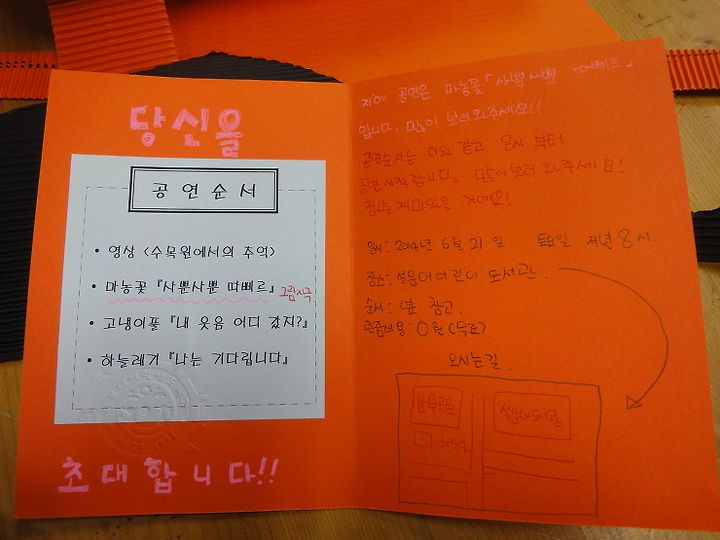 당신을
공연순서
• 영상 <수목원에서의 추억>
• 마농꽃 『사뿐사뿐 따삐르』 그림자극
• 고냉이풀 『내 웃음 어디 갔지?』
• 하늘레기 『나는 기다립니다』
초대합니다!!
저에 공연은 마농꽃 「사뿐사뿐 따삐르」
입니다. 많이 보러와주세요!!
공연순서는 이와 같고 8시 부터
공연시작합니다. 많이보러 와주세요!
정말 재미있을 거에요!
일시: 2014년 6월 21일 토요일 저녁 8시.
장소: 설문대어린이 도서관.
순서: 옆 참고.
관람비용: 0원 (무료)
오시는길.
설문대도서관